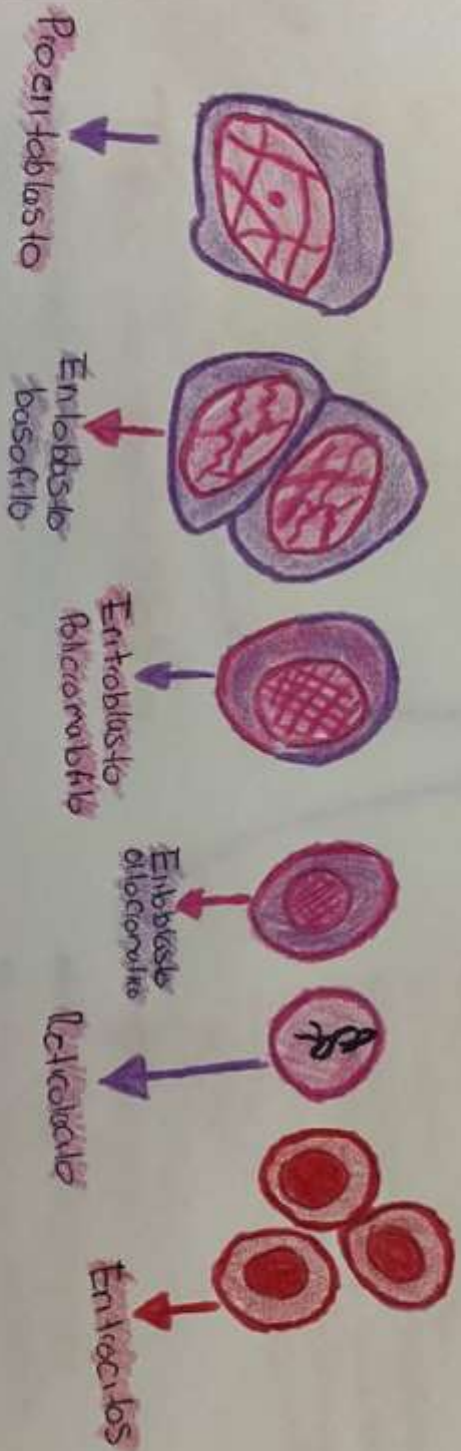 Proeritoblasto
Eritoblasto
basofilo
Eritroblasto
Policromatofilo
Eritoblasto
ortocromatico
Reticolocito
Eritrocitos